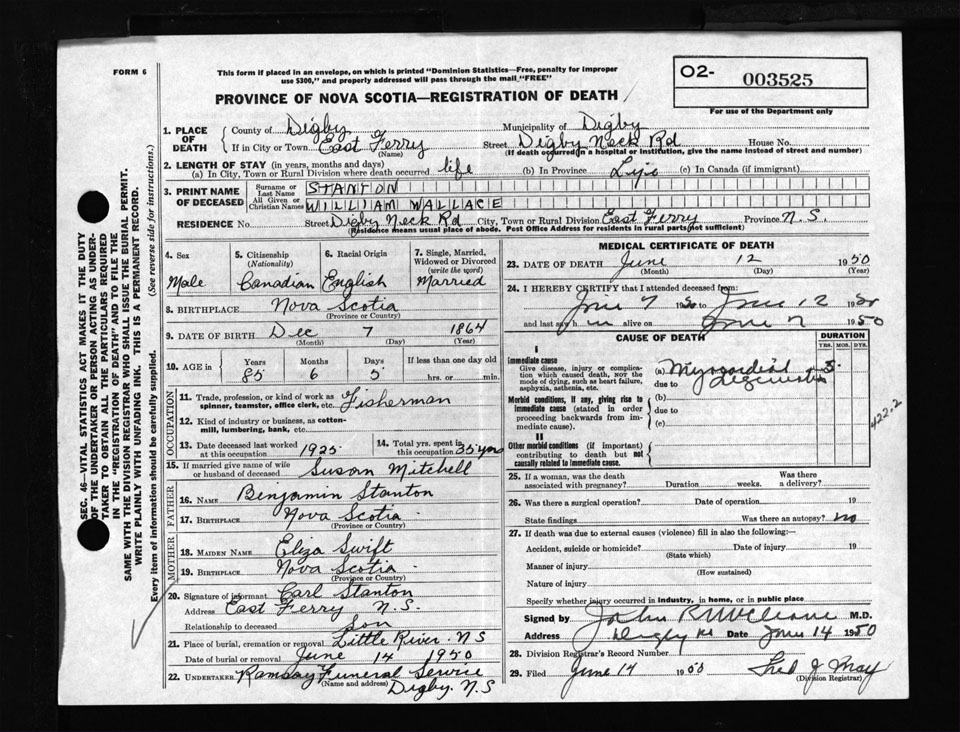 FORM 6
This form if placed in an envelope, on which is printed "Dominion Statistics—Free, penalty for improper
use $300," and properly addressed will pass through the mail "FREE"
PROVINCE OF NOVA SCOTIA—REGISTRATION OF DEATH
O2- 003525
For use of the Department only
1. PLACE OF DEATH { County of Digby Municipality of Digby
If in City or Town East Ferry (Name) Street Digby Neck Rd House No.
(If death occurred in a hospital or institution, give the name instead of street and number)
2. LENGTH OF STAY (in years, months and days)
(a) In City, Town or Rural Division where death occurred life (b) In Province Life (c) In Canada (if immigrant)
3. PRINT NAME OF DECEASED
Surname or Last Name STANTON
All Given or Christian Names WILLIAM WALLACE
RESIDENCE No. Street Digby Neck Rd City, Town or Rural Division East Ferry Province N.S.
(Residence means usual place of abode. Post Office Address for residents in rural parts not sufficient)
4. Sex Male
5. Citizenship (Nationality) Canadian
6. Racial Origin English
7. Single, Married, Widowed or Divorced (write the word) Married
8. BIRTHPLACE Nova Scotia
(Province or Country)
9. DATE OF BIRTH Dec 7 1864
(Month) (Day) (Year)
10. AGE in { Years 85 Months 6 Days 5 If less than one day old hrs. or min.
OCCUPATION
11. Trade, profession, or kind of work as spinner, teamster, office clerk, etc. Fisherman
12. Kind of industry or business, as cotton-mill, lumbering, bank, etc.
13. Date deceased last worked at this occupation 1925
14. Total yrs. spent in this occupation 35 yrs
15. If married give name of wife or husband of deceased Susan Mitchell
FATHER
16. NAME Benjamin Stanton
17. BIRTHPLACE Nova Scotia
(Province or Country)
MOTHER
18. MAIDEN NAME Eliza Swift
19. BIRTHPLACE Nova Scotia
(Province or Country)
20. Signature of informant Carl Stanton
Address East Ferry N.S.
Relationship to deceased Son
21. Place of burial, cremation or removal Little River. N S
Date of burial or removal June 14 1950
22. UNDERTAKER Ramsay Funeral Service
(Name and address) Digby. N.S
MEDICAL CERTIFICATE OF DEATH
23. DATE OF DEATH June 12 1950
(Month) (Day) (Year)
24. I HEREBY CERTIFY that I attended deceased from:
June 7 1950 to June 12 1950
and last saw him alive on June 7 1950
CAUSE OF DEATH
DURATION
YRS. MOS. DYS.
I
Immediate cause
Give disease, injury or complication which caused death, not the mode of dying, such as heart failure, asphyxia, asthenia, etc.
(a) Myocardial 5
due to degeneration
Morbid conditions, if any, giving rise to immediate cause (stated in order proceeding backwards from immediate cause).
(b)
due to
(c)
422.2
II
Other morbid conditions (if important) contributing to death but not causally related to immediate cause.
25. If a woman, was the death associated with pregnancy? Duration weeks. Was there a delivery?
26. Was there a surgical operation? Date of operation 19
State findings Was there an autopsy? no
27. If death was due to external causes (violence) fill in also the following:—
Accident, suicide or homicide? Date of injury 19
(State which)
Manner of injury
(How sustained)
Nature of injury
Specify whether injury occurred in industry, in home, or in public place
Signed by John R McCleave M.D.
Address Digby NS Date June 14 1950
28. Division Registrar's Record Number
29. Filed June 14 1950 Fred J May
(Division Registrar)
SEC. 46—VITAL STATISTICS ACT MAKES IT THE DUTY
OF THE UNDERTAKER OR PERSON ACTING AS UNDER-
TAKER TO OBTAIN ALL THE PARTICULARS REQUIRED
IN THE "REGISTRATION OF DEATH" AND TO FILE THE
SAME WITH THE DIVISION REGISTRAR WHO SHALL ISSUE THE BURIAL PERMIT.
WRITE PLAINLY WITH UNFADING INK. THIS IS A PERMANENT RECORD.
Every item of information should be carefully supplied. (See reverse side for instructions.)